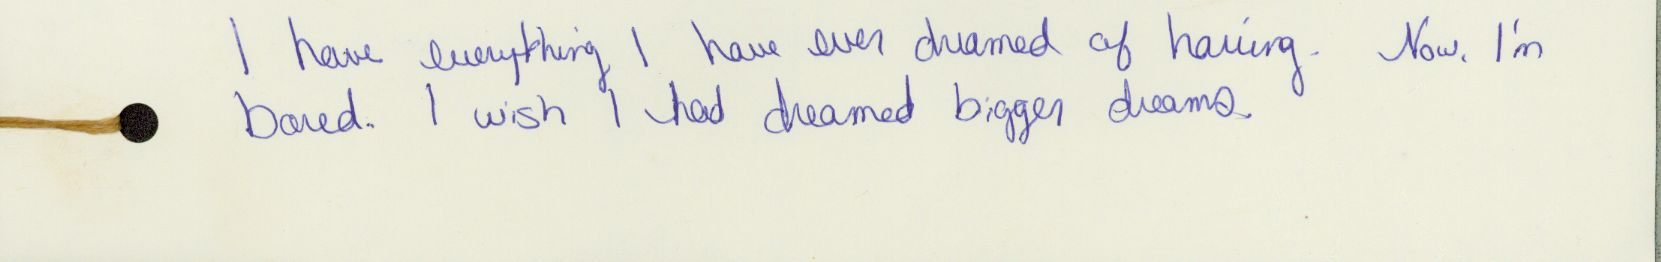 I have everything I have ever dreamed of having. Now. I'm
bored. I wish I had dreamed bigger dreams.